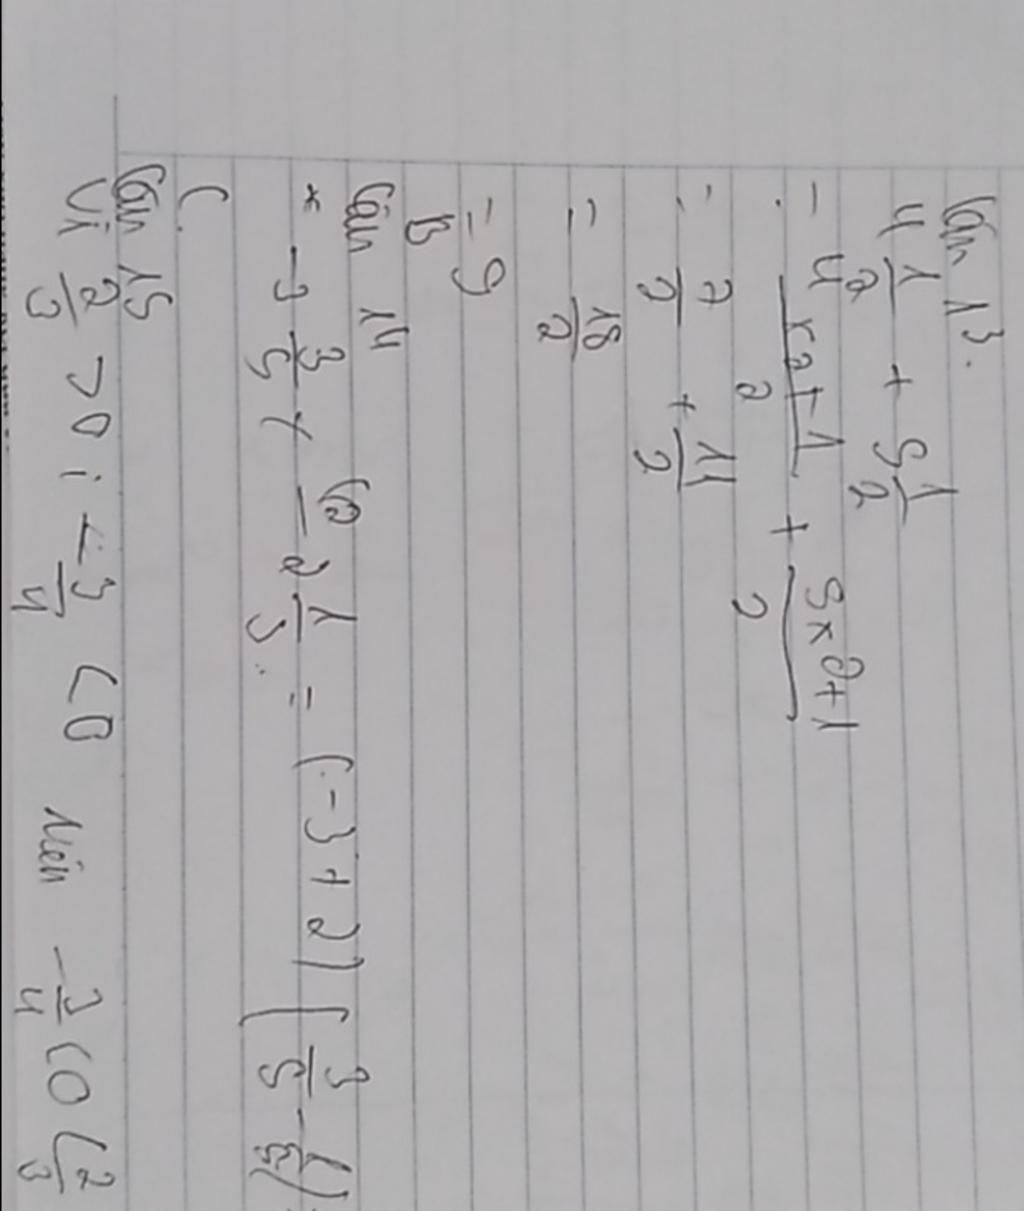 Câu 13.
4 1/2 + 5 1/2
= 4x2+1/2 + 5x2+1/2
= 7/2 + 11/2
= 18/2
= 9
B
Câu 14
* -3 3/5 + 2 1/5 = (-3+2)
C.
Câu 15
Vì 2/3 > 0 ; -3/4 < 0 Nên -3/4 < 0 < 2/3